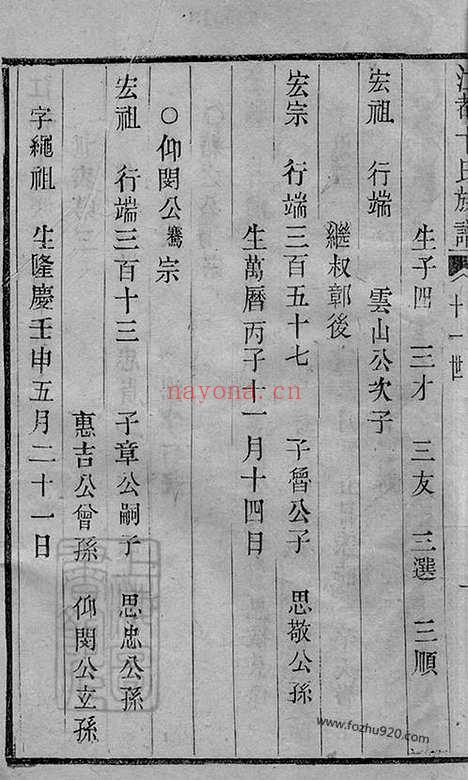 氏族譜 十一世
生子四 三才 三友 三選 三順
宏祖 行端 雲山公次子
繼叔鄣後
宏宗 行端三百五十七 子魯公子 思敬公孫
生萬曆丙子十一月十四日
○仰閔公騫宗
宏祖 行端三百十三 子章公嗣子 思忠公孫
惠吉公曾孫 仰閔公玄孫
字繩祖 生隆慶壬申五月二十一日
nayona.cn
www.fozhu920.com